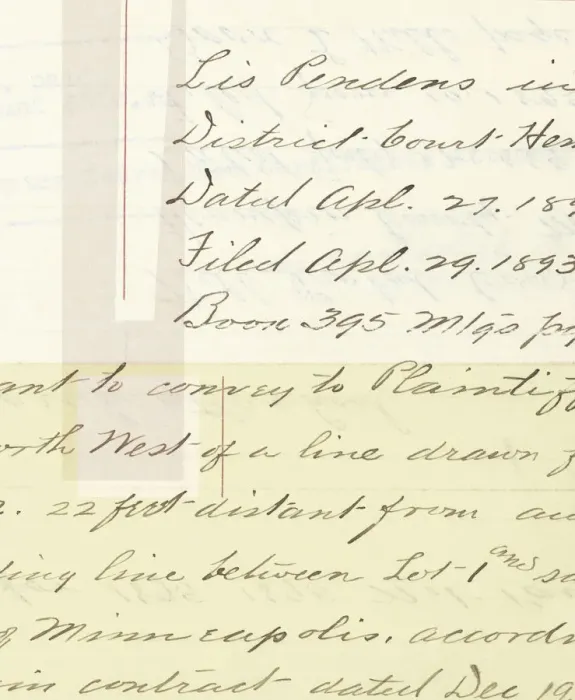 Lis Pendens in
District Court Hen
Dated Apl. 27. 189
Filed Apl. 29. 1893
Book 395 Mtgs
ant to convey to Plaintiff
orth West of a line drawn
22 feet distant from
ding line between Lot 1 and
of Minneapolis, accordi
in contract dated Dec 19